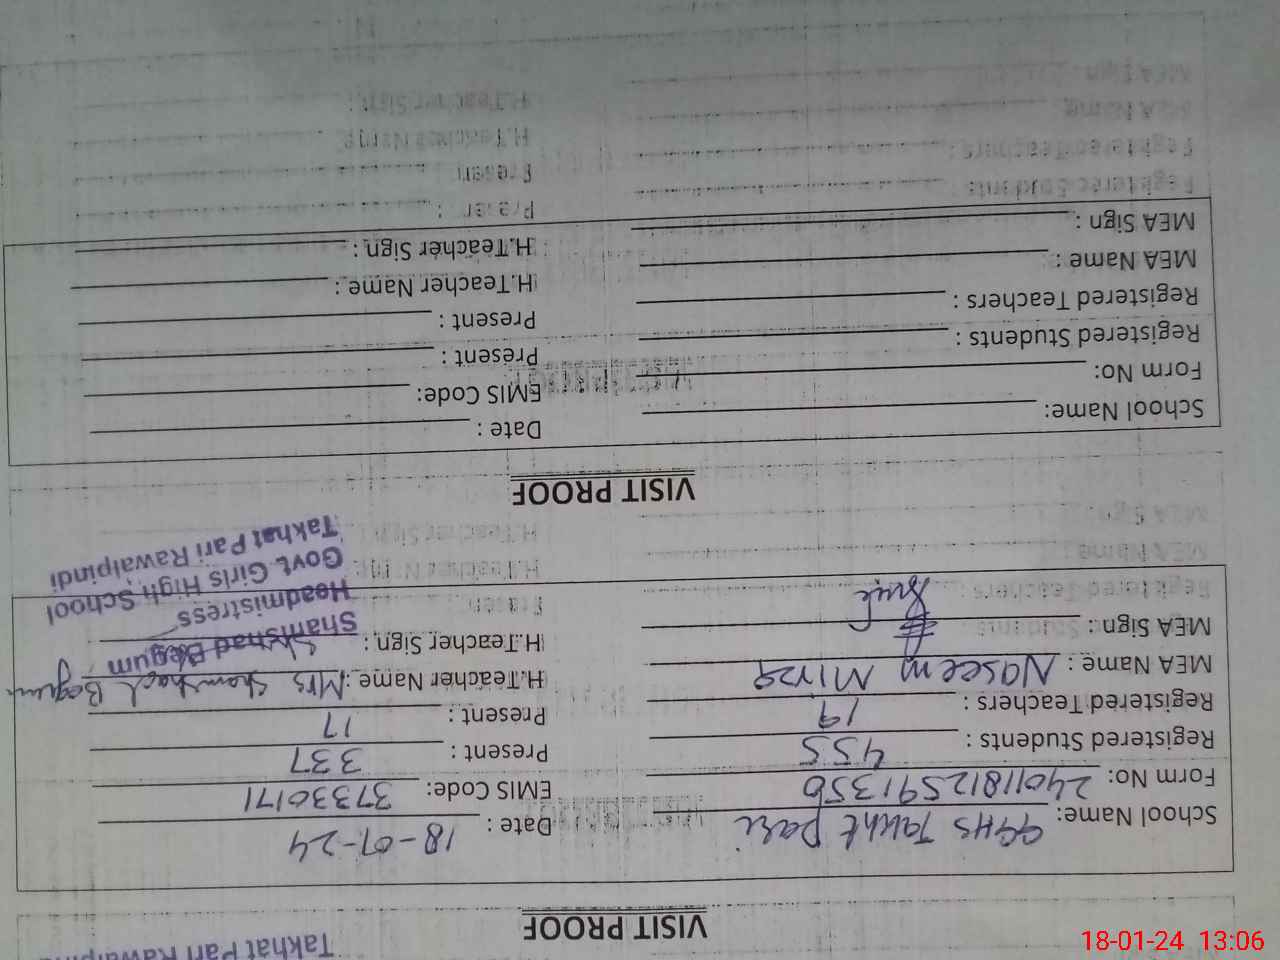 Takhat Pari Rawalpindi
VISIT PROOF
School Name: GGHS Takht pari Date : 18-01-24
Form No: 24011812591350 EMIS Code: 37330171
Registered Students : 455 Present : 337
Registered Teachers : 19 Present : 17
MEA Name : Naseem Mirza H.Teacher Name : Mrs Shamshad Begum
MEA Sign : H.Teacher Sign :
Shamshad Begum
Headmistress
Govt. Girls High School
Takhat Pari Rawalpindi
VISIT PROOF
School Name: Date :
Form No: EMIS Code:
Registered Students : Present :
Registered Teachers : Present :
MEA Name : H.Teacher Name :
MEA Sign : H.Teacher Sign :
18-01-24 13:06